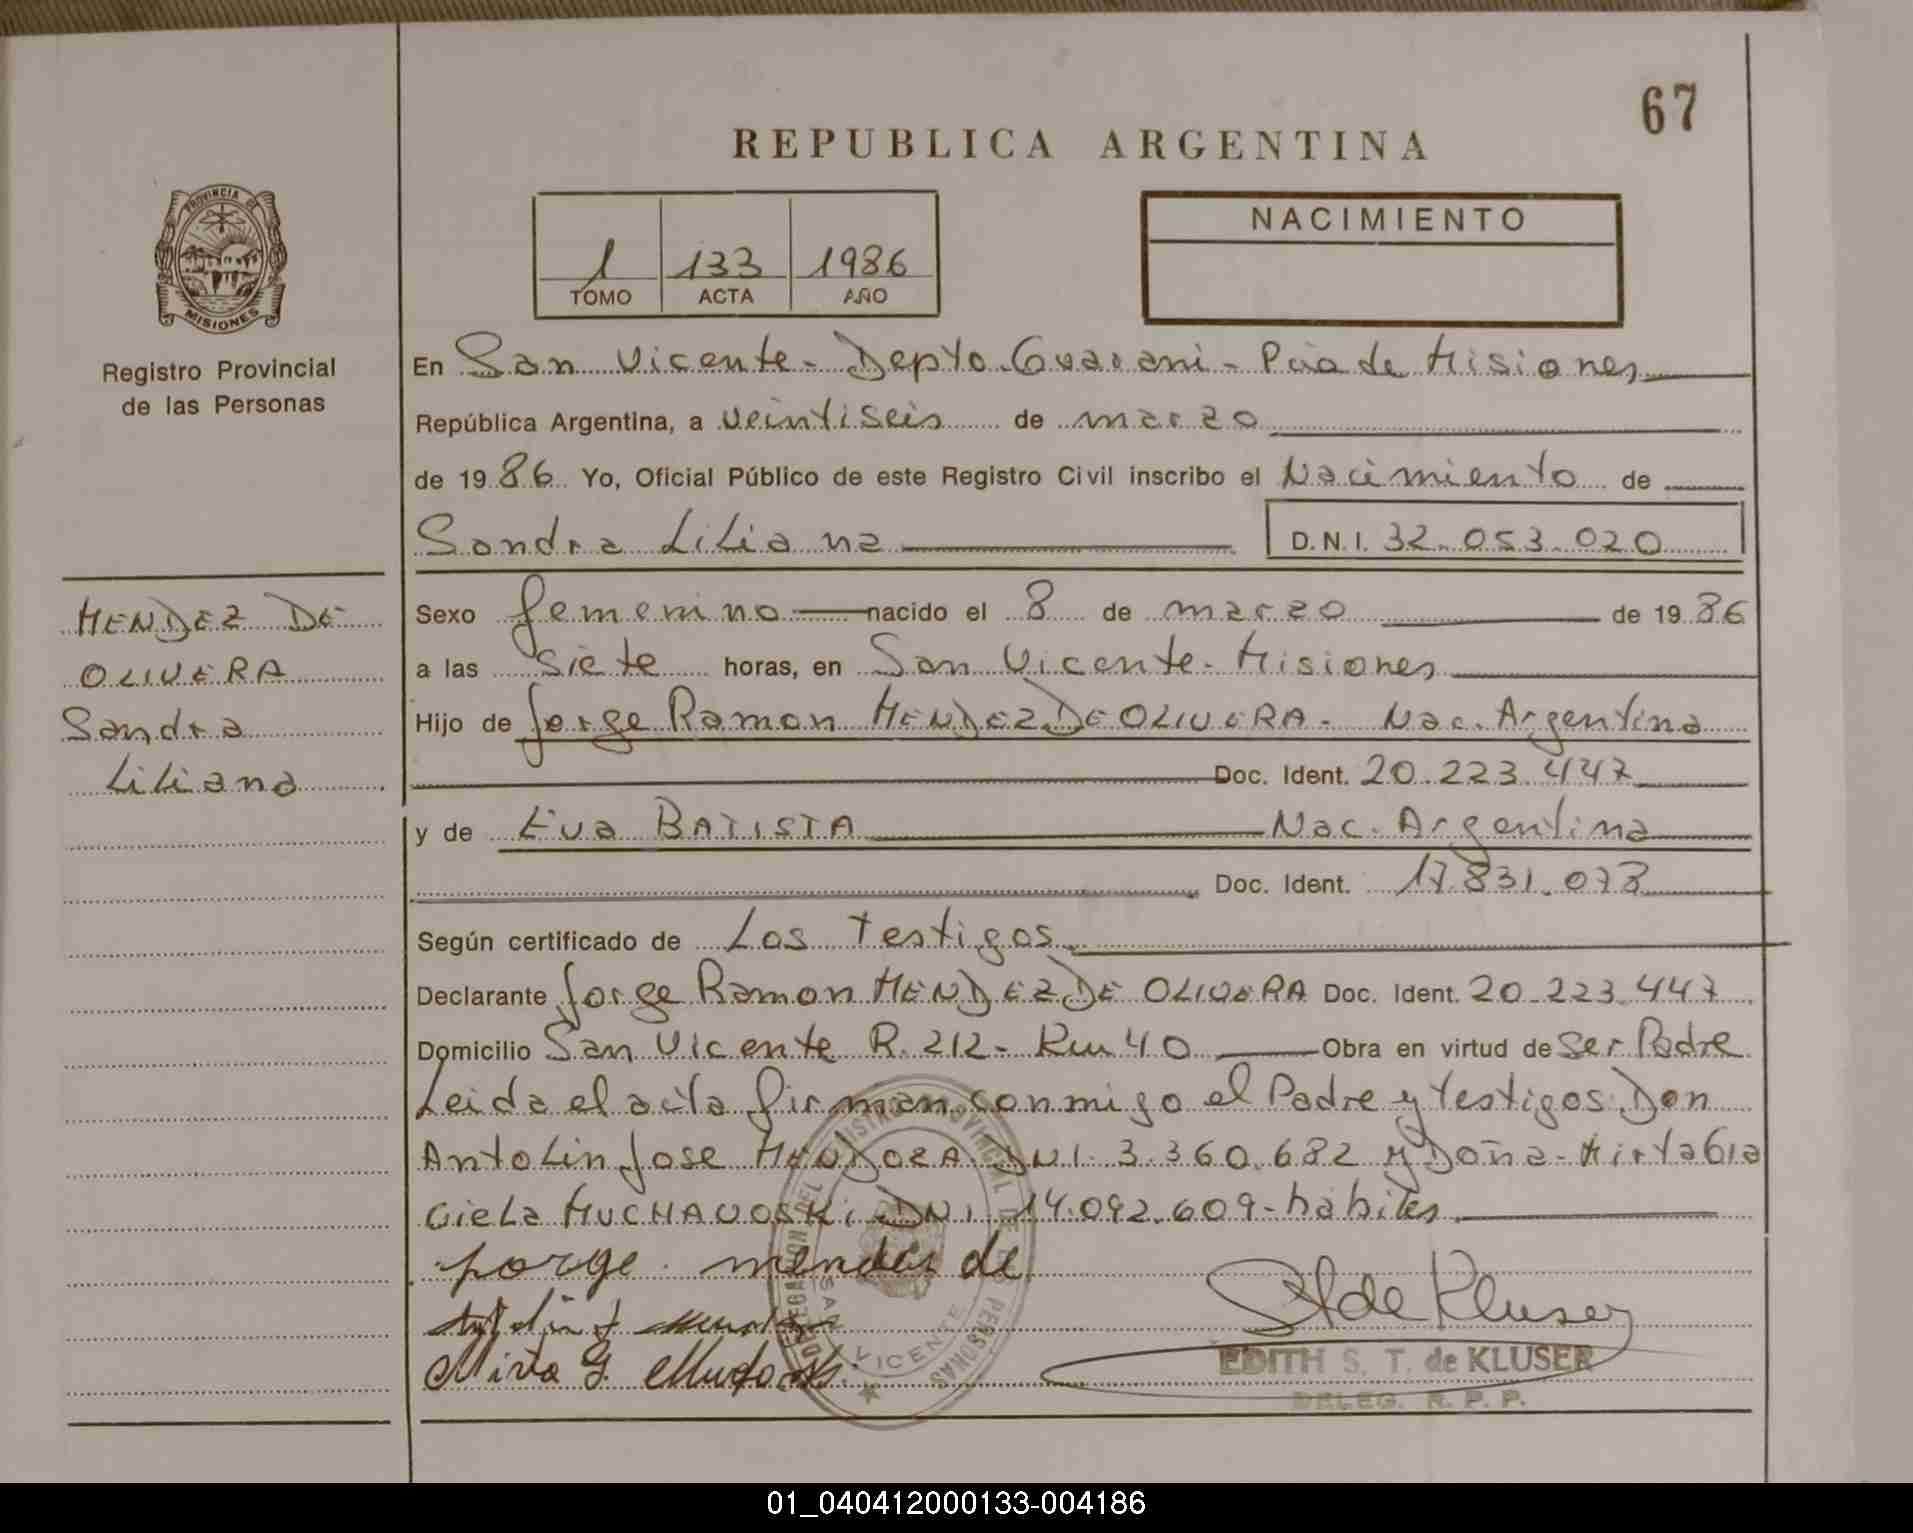 67
REPUBLICA ARGENTINA
PROVINCIA DE
MISIONES
Registro Provincial
de las Personas
1 133 1986
TOMO ACTA AÑO
NACIMIENTO
En San Vicente - Depto. Guarani - Pcia de Misiones
República Argentina, a veintiseis de marzo
de 1986 Yo, Oficial Público de este Registro Civil inscribo el Nacimiento de
Sandra Liliana D.N.I. 32.053.020
MENDEZ DE
OLIVERA
Sandra
Liliana
Sexo femenino nacido el 8 de marzo de 1986
a las siete horas, en San Vicente - Misiones
Hijo de Jorge Ramon MENDEZ DE OLIVERA - Nac. Argentina
Doc. Ident. 20.223.447
y de Eva BATISTA Nac. Argentina
Doc. Ident. 17.831.078
Según certificado de Los testigos
Declarante Jorge Ramon MENDEZ DE OLIVERA Doc. Ident. 20.223.447
Domicilio San Vicente R. 212 - Km 40 Obra en virtud de ser Padre
Leida el acta firman conmigo el Padre y testigos Don
Antolin Jose MENDOZA DNI. 3.360.682 y Doña - Mirta Gra
ciela MUCHAVOSKI DNI 14.092.609 - habiles.
jorge mendes de
Mirta G.
S T de Kluser
EDITH S. T. de KLUSER
DELEG. R. P. P.
DELEGACION DEL REGISTRO PROVINCIAL DE LAS PERSONAS
SAN VICENTE
01_040412000133-004186